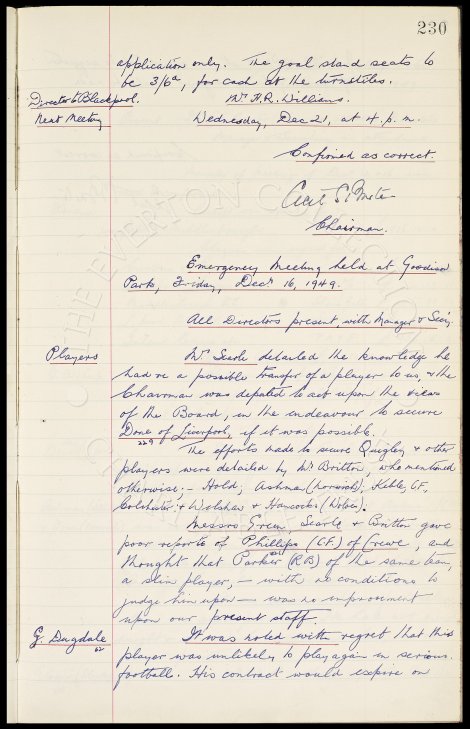 230
application only. The goal stand seats to
be 3/6d, for cash at the turnstiles.
Director to Blackpool. Mr. H.R. Williams.
Next Meeting Wednesday, Dec 21, at 4 p.m.
Confirmed as correct.
Chairman.
Emergency Meeting held at Goodison
Park, Friday, Decr 16, 1949.
All Directors present, with Manager & Sec'y.
Players Mr. Searle detailed the knowledge he
had re a possible transfer of a player to us, & the
Chairman was deputed to act upon the views
of the Board, in the endeavour to secure
Done of Liverpool, if it was possible.
229
The efforts made to secure Quigley & other
players were detailed by Mr Britton, who mentioned
otherwise:- Hold, Ashman (Norwich), Keble, CF,
Colchester & Walshaw & Hancocks (Wolves).
Messrs Green, Searle & Britton gave
poor reports of Phillips (CF.) of Crewe, and
thought that Parker (RB) of the same team,
a slim player, – with no conditions to
judge him upon – was no improvement
upon our present staff.
G. Dugdale It was noted with regret that this
62
player was unlikely to play again in serious
football. His contract would expire on
THE EVERTON COLLECTION